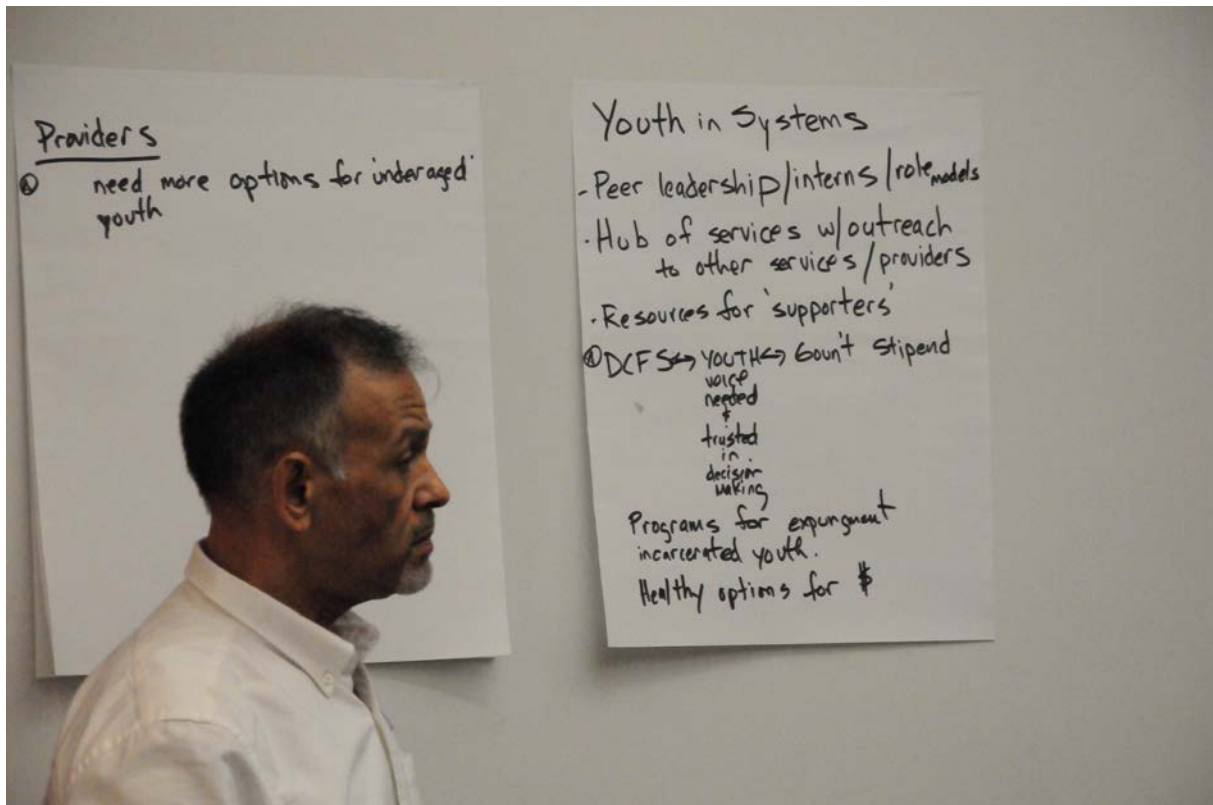 Providers
need more options for 'underaged'
youth
Youth in Systems
- Peer leadership/interns/role models
· Hub of services w/outreach
to other services/providers
· Resources for 'supporters'
DCFS ↔ YOUTH ↔ Goun't Stipend
voice
needed
&
trusted
in
decision
making
Programs for expungment
incarcerated youth.
Healthy options for $